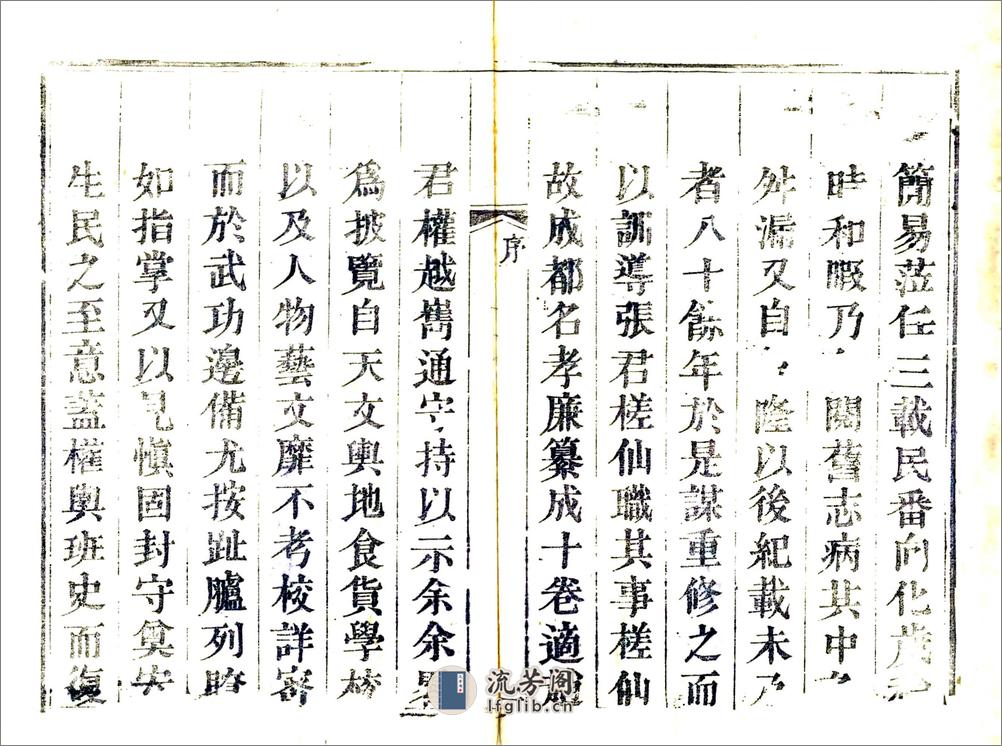 簡易蒞任三載民番向化歲
時和暇乃閱舊志病其中
舛漏又自隆以後紀載未及
者八十餘年於是謀重修之而
以訓導張君槎仙職其事槎仙
故成都名孝廉纂成十卷適
序
君權越嶲通守持以示余余
為披覽自天文輿地食貨學校
以及人物藝文靡不考校詳審
而於武功邊備尤按趾臚列瞭
如指掌又以見慎固封守奠安
生民之至意蓋權輿班史而復
流芳阁
lfglib.cn